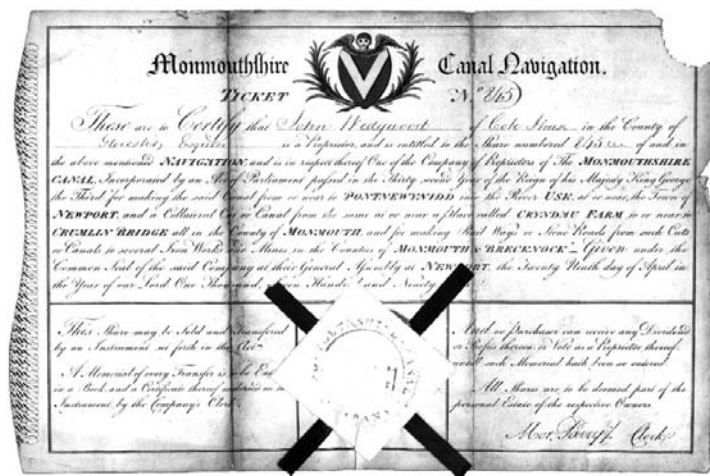 Monmouthshire Canal Navigation.
TICKET No. 845
These are to Certify that John Wedgwood of Cote House in the County of
Glocester, Esquire is a Proprietor, and is entitled to the Share numbered of and in
the above mentioned NAVIGATION, and is in respect thereof One of the Company of Proprietors of The MONMOUTHSHIRE
CANAL, Incorporated by an Act of Parliament passed in the Thirty second Year of the Reign of his Majesty King George
the Third for making the said Canal from or near to PONTNEWYNIDD into the River USK, at or near, the Town of
NEWPORT, and a Collateral Cut or Canal from the same at or near a place called CRYNDAU FARM to or near to
CRUMLIN BRIDGE all in the County of MONMOUTH and for making Rail Ways or Stone Roads from such Cuts
or Canals to several Iron Works and Mines in the Counties of MONMOUTH & BRECKNOCK. Given under the
Common Seal of the said Company at their General Assembly at NEWPORT, the Twenty Ninth day of April in
the Year of our Lord One Thousand, Seven Hundred and Ninety
This Share may be Sold and Transferred
by an Instrument set forth in the Act
A Memorial of every Transfer is to be
in a Book, and a Certificate thereof endorsed on
Instrument by the Company's Clerk
And no purchaser can receive any Dividend
or Profits thereon, or Vote as a Proprietor thereof,
until such Memorial hath been so entered.
All Shares are to be deemed part of the
personal Estate of the respective Owners.
Clerk